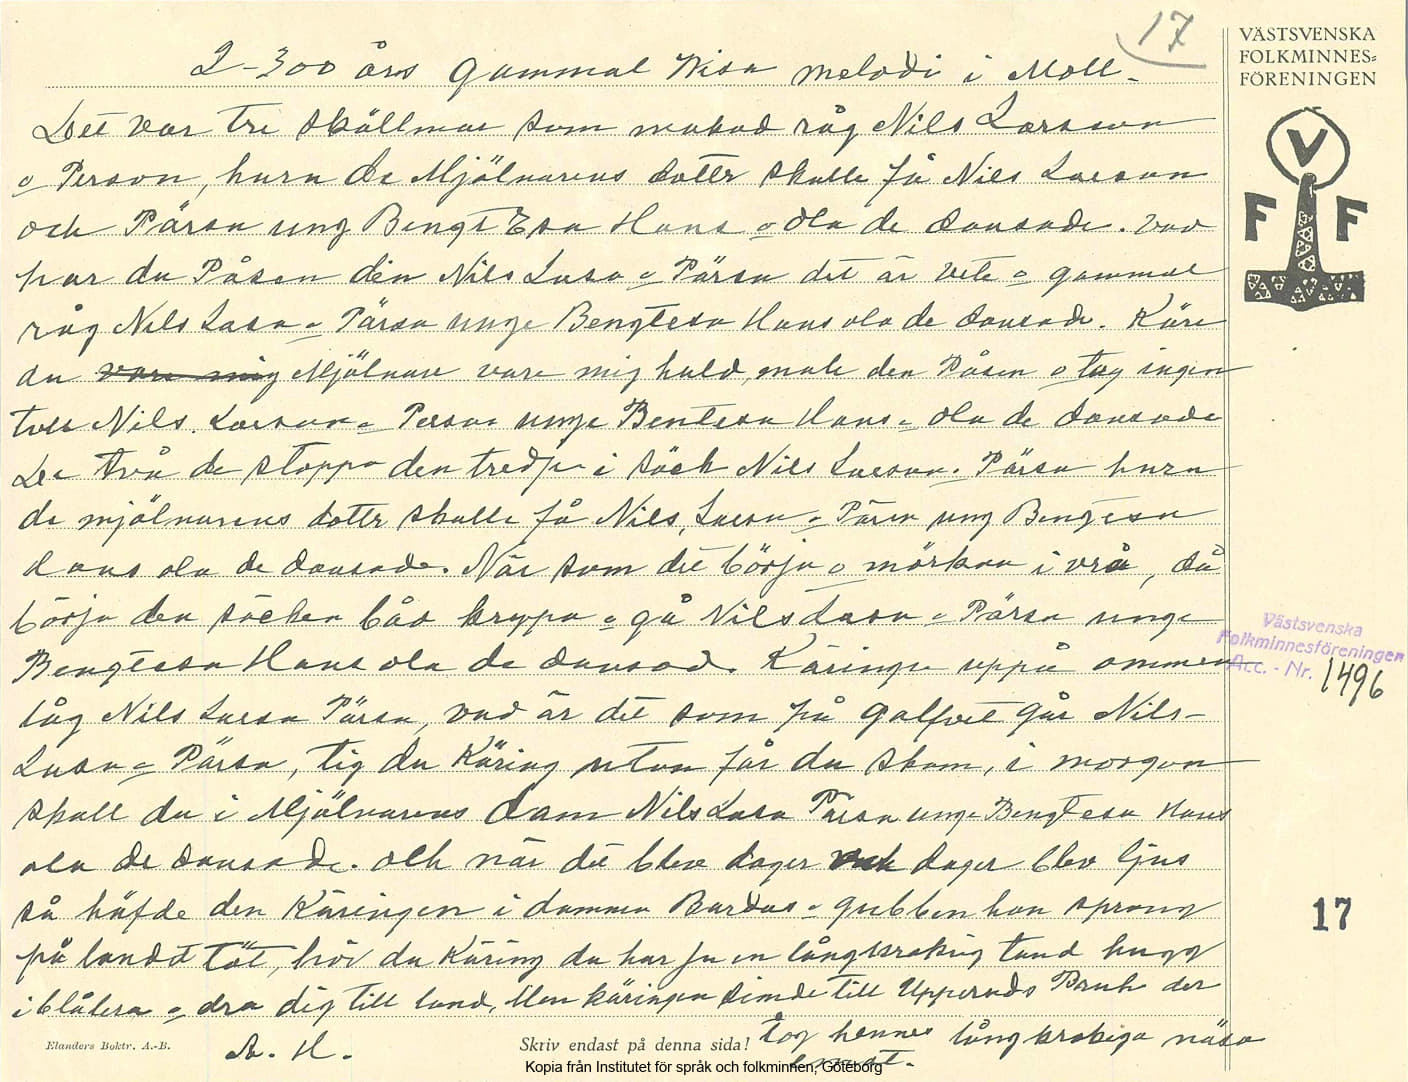 17
VÄSTSVENSKA
FOLKMINNES-
FÖRENINGEN
V
F F
2-300 års gammal Visa melodi i Moll.
Det var tre skällmar som makad råg Nils Larsson
o Person, huru de Mjölnarens dotter skulle få Nils Larson
och Pärsa ung Bengt Esa Hans o ola de dansade. vad
har du Påsen den Nils Lasa o Pärsa det är vete o gammal
råg Nils Lasa o Pärsa unge Bengtesa Hans ola de dansade. Käre
du vare mig Mjölnare vare mig huld, male den Påsen o tag ingen
tull Nils Larson o Person unge Bentesa Hans o ola de dansade
De två de stoppa den tredje i säck Nils Larson o Pärsa huru
de mjölnarens dotter skulle få Nils, Larsa o Pärsa ung Bengtesa
Hans ola de dansade. När som det börja o mörkna i vrå, då
börja den säcken båd krypa o gå Nils Lasa o Pärsa unge
Bengtesa Hans ola de dansad. Käringa uppå ommen
låg Nils Larsa Pärsa, vad är det som på golfvet går Nils-
Lasa o Pärsa, tig du Käring utan får du skam, i morgon
skall du i Mjölnarens dam Nils Lasa Pärsa unge Bengtesa Hans
ola de dansade. och när det blev dager och dager blev ljus
så häfde den Käringen i dammen Bardus o gubben han sprang
på landd tåt, hör du Käring du har ju en långkrokig tand hugg
i blåtera o dra dig till land, Men käringen simde till Upperuds Bruk der
tog hennes långkrokiga näsa
emot.
A. H.
Västsvenska
Folkminnesföreningen
Acc. - Nr. 1496
17
Elanders Boktr. A.-B.
Skriv endast på denna sida!
Kopia från Institutet för språk och folkminnen, Göteborg